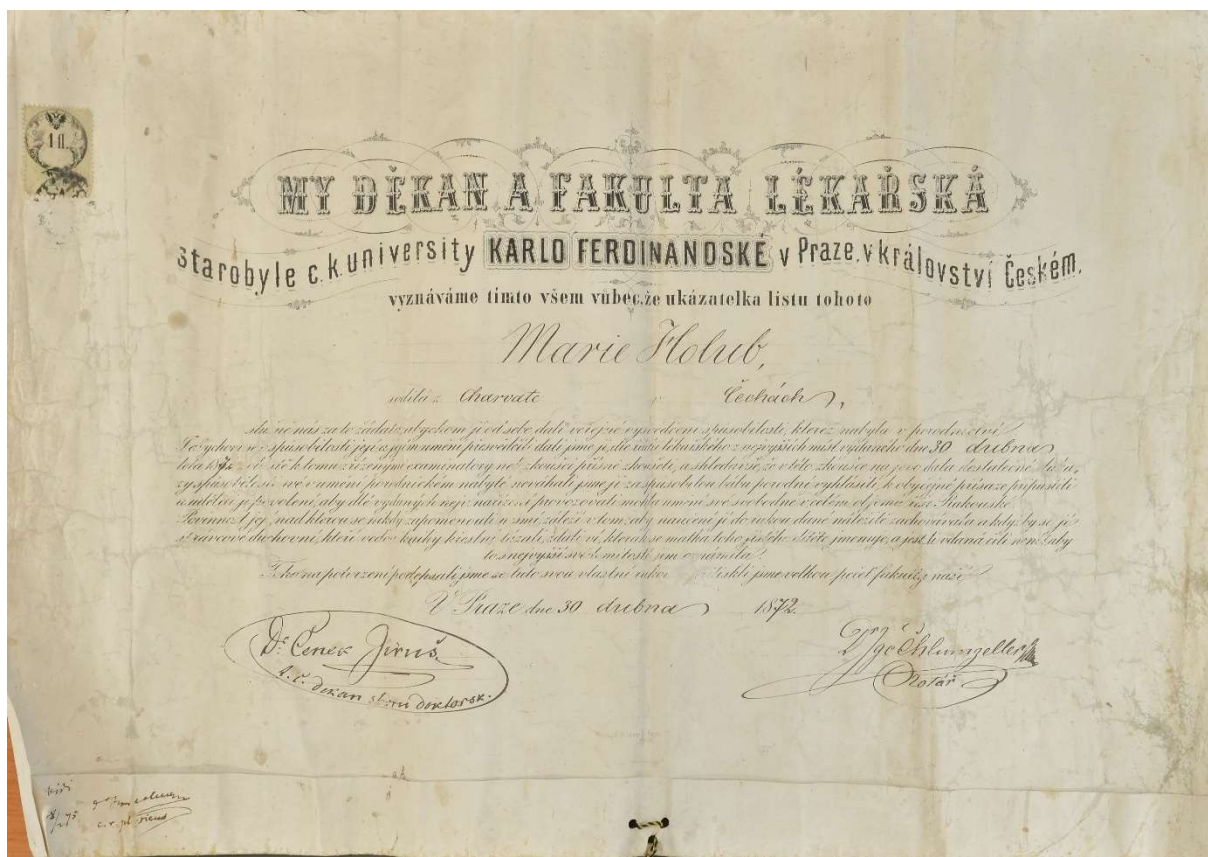 1 fl.
MY DĚKAN A FAKULTA LÉKAŘSKÁ
starobyle c.k. university KARLO FERDINANDSKÉ v Praze, v království Českém,
vyznáváme timto všem vůbec, že ukázatelka listu tohoto
Marie Holub,
rodilá z Charvatc v Čechách,
nás za to žádala, abychom jí od sebe dali veřejné vysvědčení spůsobilosti, kteréž nabyla v porodnictví
spůsobilosti její a jejím umění přesvědčili dali jsme ji, dle řádu lékařského z nejvyšších míst vydaného dne 30 dubna
k tomu zřízenými examinatory neb zkoušeči přísně zkoušeti, a shledavše, že v této zkoušce na jevo dala dostatečné
v umění porodnickém nabyté, neváhali jsme ji za spůsobilou bábu porodní vyhlásiti, k obyčejné přísaze připustiti
a uděliti jí povolení, aby dle vydaných nejv. nařízení provozovati mohla umění své svobodně v celém objemu říše Rakouské.
Povinnost její, nad kterou se nikdy zapomenouti nesmí, záleží v tom, aby naučení jí do rukou dané náležitě zachovávala a kdyby se jí
správcové duchovní, kteří vedou knihy křestné tázali, zdali ví, kterak se matka toho jistého dítěte jmenuje, a jest-li vdaná čili není, aby
to svědomitostí jim oznámila.
Toho na potvrzení podepsali jsme se tuto svou vlastní rukou přitiskli jsme velkou pečeť fakulty naší
V Praze dne 30 dubna 1872.
Dr. Čeněk Jiruš
děkan sboru doktorsk.
Notář